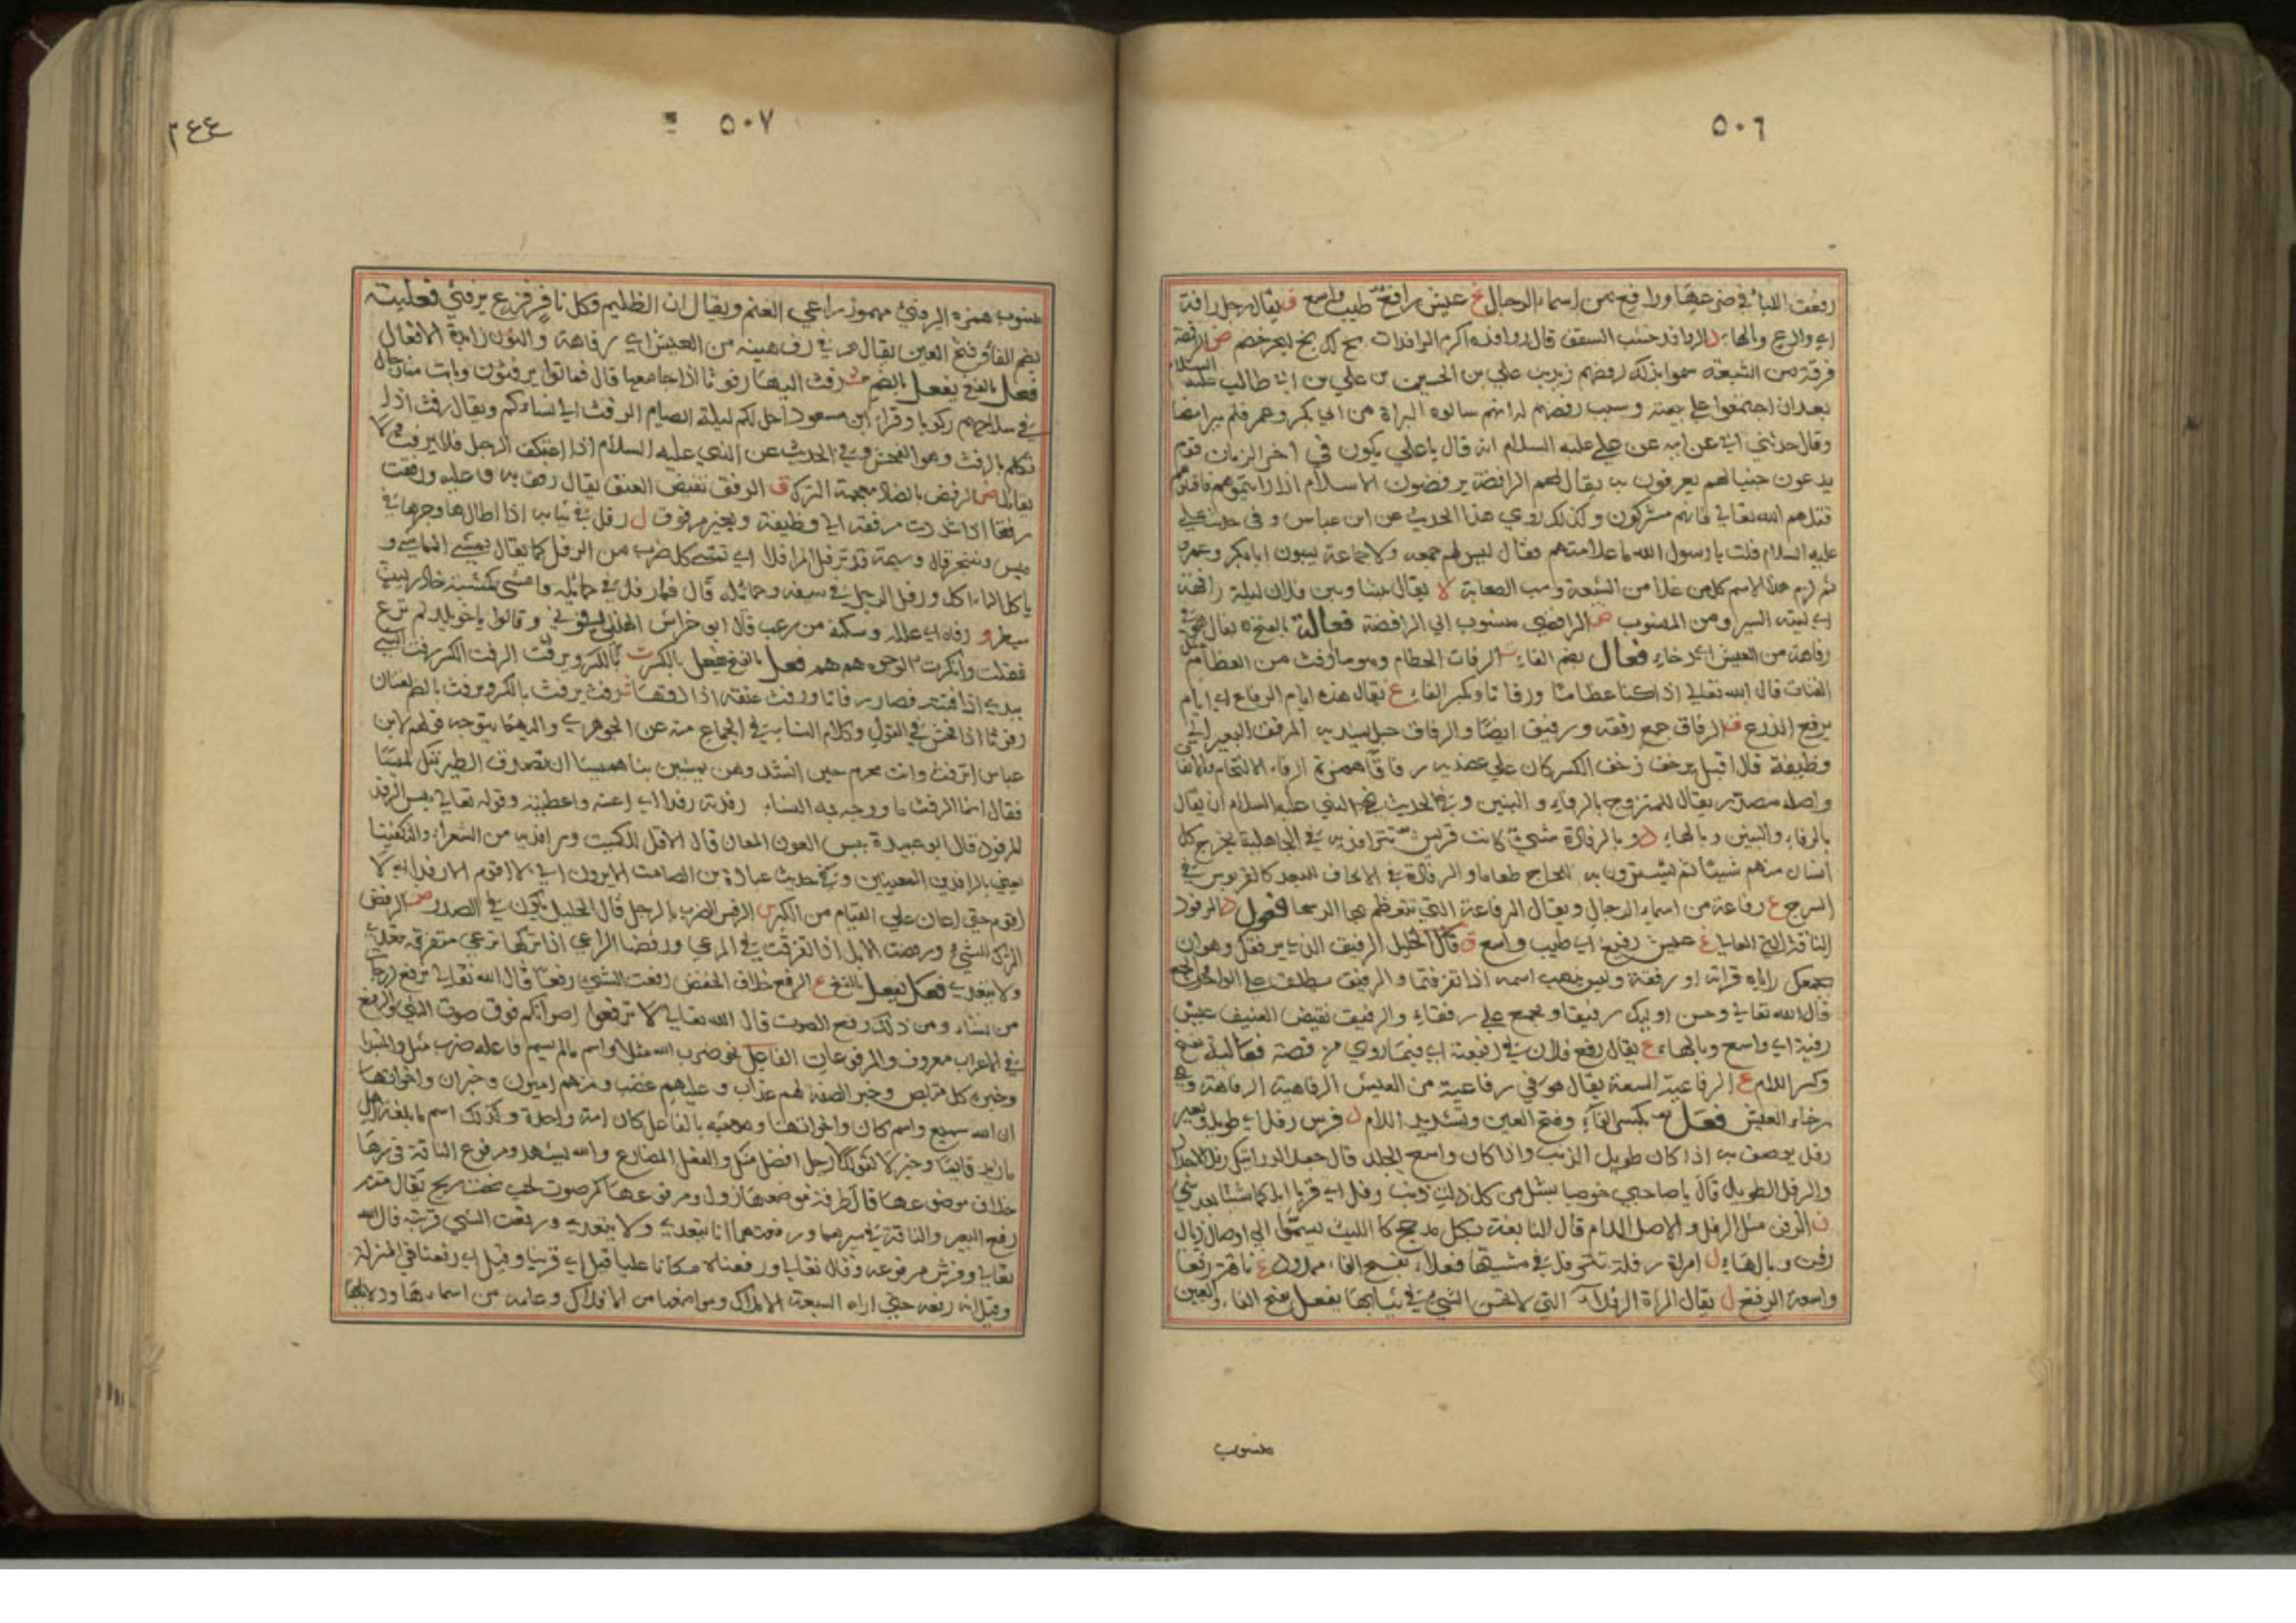 ٥٠٦
رفعت اللبأ في ضرعها ورافع من اسماء الرجال غ عيش رافغ طيب واسع ف يقال رجل رافة
اي وادع وبالهاء د الرافد خشب السقف قال روافده اكرم الرافدات بخ لك بخ لبحر خضم ض الرافضة
فرقة من الشيعة سموا بذلك لرفضهم زيد بن علي بن الحسين بن علي بن ابي طالب عليه السلام
بعد ان اجتمعوا على بيعته وسبب رفضهم له انهم سالوه البراة من ابي بكر وعمر فلم يبرا منهما
وقال حدثني ابي عن ابيه عن علي عليه السلام انه قال يا علي يكون في اخر الزمان قوم
يدعون حبنا لهم يعرفون به يقال لهم الرافضة يرفضون الاسلام اذا رايتموهم فاقتلوهم
قتلهم الله تعالى فانهم مشركون وكذلك روي هذا الحديث عن ابن عباس وفي حديث علي
عليه السلام قلت يا رسول الله ما علامتهم فقال ليس لهم جمعه ولا جماعة يسبون ابا بكر وعمر
ثم لزم هذا الاسم كل من غلا من الشيعة وسب الصحابة لا يقال بيننا وبين فلان ليلة رافهة
اي لينة السير ومن المنسوب ض الرافضي منسوب الى الرافضة فعالة بالفتح ه يقال هو في
رفاهة من العيش اي رخاء فعال بضم الفاء ت الرفات الحطام وهو ما رفت من العظام مثل
الفتات قال الله تعالى اذا كنا عظاما ورفاتا وبكسر الفاء ع يقال هذه ايام الرفاع اي ايام
يرفع الزرع ق الرفاق جمع رفقة ورفيق ايضا والرفاق حبل يشد به المرفق البعير الى
وظيفه قال اقبل يزحف زحف الكسير كان على عضديه رفاقا همزة الرفاء الالتحام والاتفاق
واصله مصدر يقال للمتزوج بالرفاء والبنين وفي الحديث نهى النبي عليه السلام ان يقال
بالرفاء والبنين وبالهاء د و بالرفادة شيء كانت قريش تترافد به في الجاهلية يخرج كل
انسان منهم شيئا ثم يشترون به للحاج طعاما والرفادة في الاكاف الجعد كالقربوس في
السرج ع رفاعة من اسماء الرجال ويقال الرفاعة التي تتعظم بها الرسحا فعول د الرفود
الناقة التي تملا غ عيش رفيغ اي طيب واسع ق قال الخليل الرفيق الذي يرفقك وهو ان
يجمعك واياه قران او رفقة وليس يذهب اسمه اذا تفرقتما والرفيق يطلق على الواحد والجمع
قال الله تعالى وحسن اوليك رفيقا ويجمع على رفقاء والرفيق نقيض العنيف عيش
رفيه اي واسع وبالهاء ع يقال رفع فلان في رفيعته اي فيما روي من قصته فعالية بفتح
وكسر اللام ع الرفاعية السعة يقال هو في رفاعية من العيش الرفاهية الرفاهة وهي
رخاء العيش فعل بكسر الفاء وفتح العين وتشديد اللام ل فرس رفل اي طويل وبعير
رفل يوصف به اذا كان طويل الذنب واذا كان واسع الجلد قال جعد الدرانيك رفل الاجلاد
والرفل الطويل قال يا صاحبي خوصا بسل من كل ذات ذنب رفل اي قربا ابلكما شيئا بعد شيء
ن الرفن مثل الرفل والاصل اللام قال النابغة بكل مدجج كالليث يسمو الى اوصال ذيال
رفن وبالهاء ل امراة رفلة تتحرفل في مشيتها فعلاء بفتح الفاء ممدود غ ناقة رفغا
واسعة الرفغ ل يقال المراة الرفلاء التي لا تحسن المشي في ثيابها يفعل بفتح الفاء والعين
منسوب
٥٠٧
٢٤٤
منسوب همزه اليرفئي مهموز راعي الغنم ويقال ان الظليم وكل نافر فزع يرفئي فعلينة
بضم الفاء وفتح العين يقال هو في رفهينة من العيش اي رفاهة والنون زايدة الافعال
فعل بالفتح يفعل بالضم ث رفث اليها رفوثا اذا جامعها قال فباتوا يرفثون وبات منا رجال
في سلاحهم ركوبا وقراءة ابن مسعود احل لكم ليلة الصيام الرفث الى نساءكم ويقال رفث اذا
تكلم بالرفث وهو الفحش وفي الحديث عن النبي عليه السلام اذا اعتكف الرجل فلا يرفث ولا
يقاتل ض الرفض بالضاد معجمة الترك ق الرفق نقيض العنف يقال رفق به وعليه ورفقت
رفقا اذا شددت مرفقه الى وظيفه وبعير مرفوق ل رفل في ثيابه اذا اطالها وجرها في
ميس وتبختر قال وسيمة قد ترفل المرافلا اي تمشي كل ضرب من الرفل كما يقال يمشي المماشي و
ياكل الماكل ورفل الرجل في سيفه وحمائله قال فما رفل في حمائله وامشى كمشية خادر ليث
سبطر و رفاه اي علله وسكنه من رعب قال ابو خراش الهذلي رفوني وقالوا يا خويلد لم ترع
فقلت وانكرت الوجوه هم هم فعل بالفتح يفعل بالكسر ت يرفت بالكسر ويرفت الرفت الكسر رفت الشيء
بيده اذا فتته فصار رفاتا ورفت عنقه اذا دقها ث رفث يرفث بالكسر ويرفث بالضم لغتان
رفوثا اذا افحش في القول وكلام النساء في الجماع منه عن الجوهري والى هذا يتوجه قولهم لابن
عباس اترفث وانت محرم حين انشد وهن يمشين بنا هميسا ان تصدق الطير ننك لميسا
فقال انما الرفث ما ووجه به النساء رفدته رفدا اي اعنته واعطيته وقوله تعالى بئس الرفد
المرفود قال ابو عبيدة بئس العون المعان قال الاقل للكميت ومرافديه من الشعراء والتكفيتا
يعني بالرافدين المعينين وفي حديث عبادة بن الصامت الا يرون اني لا اقوم الا رفدا اي لا
اقوم حتى اعان على القيام من الكبر س الرفس الضرب بالرجل قال الخليل يكون في الصدر ض الرفض
الترك للشيء ورفضت الابل اذا تفرقت في المرعى ورفضها الراعي اذا تركها ترعى متفرقة يتعدى
ولا يتعدى فعل يفعل بالفتح ع الرفع خلاف الخفض رفعت الشيء رفعا قال الله تعالى نرفع درجات
من نشاء ومن ذلك رفع الصوت قال الله تعالى لا ترفعوا اصواتكم فوق صوت النبي والرفع
في الاعراب معروف والمرفوعات الفاعل نحو ضرب الله مثلا واسم ما لم يسم فاعله ضرب مثل والمبتدا
وخبره كل متربص وخبر الصفة لهم عذاب وعليهم غضب ومنهم اميون وخبر ان واخواتها
ان الله سميع واسم كان واخواتها ومشبه بالفاعل كان امة واحدة وكذلك اسم ما بلغة اهل
ما زيد قايما وخبر لا كقولك لا رجل افضل منك والفعل المضارع والله يشهد ومرفوع الناقة في سيرها
خلاف موضوعها قال طرفة موضوعها زول ومرفوعها كمر صوت لجب تحت ريح يقال منه
رفع البعير والناقة في سيرهما ورفعتهما انا يتعدى ولا يتعدى ورفعت الشيء قربته قال الله
تعالى وفرش مرفوعه وقال تعالى ورفعناه مكانا عليا قيل اي قربناه وقيل اي رفعنا في المنزلة
وقيل انه رفعه حتى اراه السبعة الاملاك ومواضعها من الافلاك وعلمه من اسمائها ودلائلها